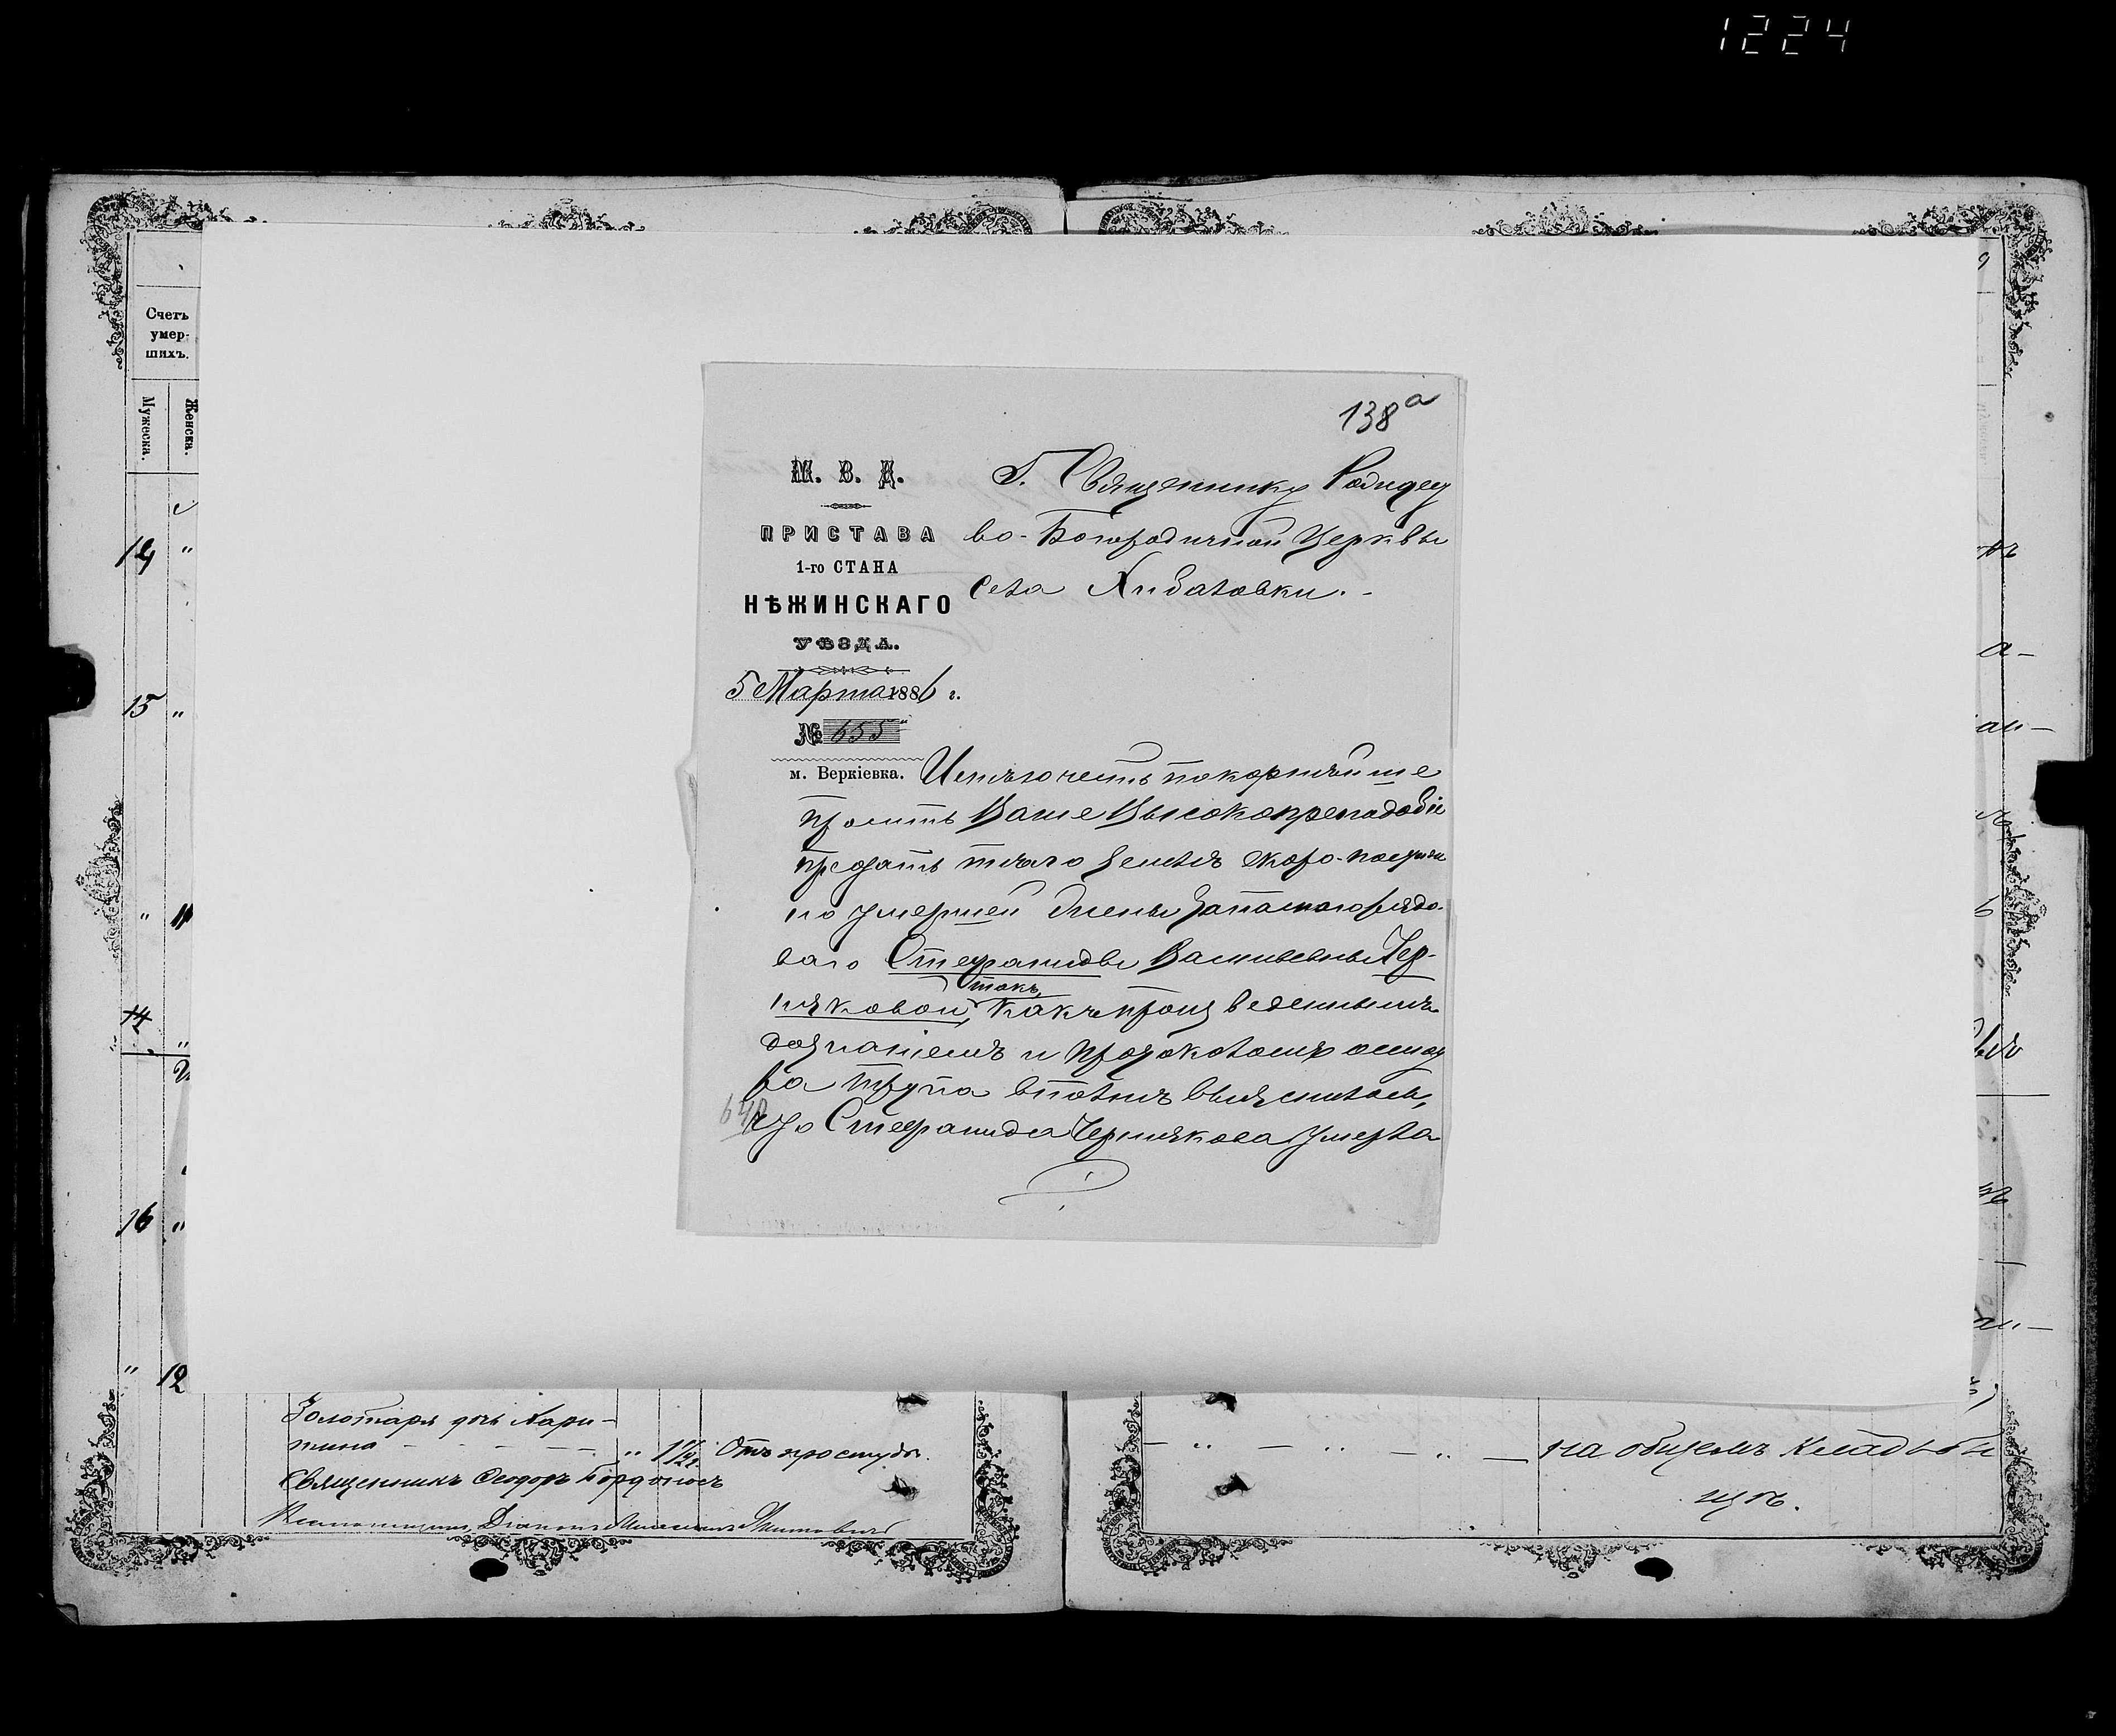 1224
Счетъ
умер-
шихъ.
Мужеска.
Женска.
14
15
14
16
12
138а
М. В. Д.
ПРИСТАВА
1-го СТАНА
НѢЖИНСКАГО
УѢЗДА.
5 Марта 1886 г.
№ 655
м. Веркіевка.
Г. Священнику Рождест
во-Богородичной Церквы
села Хибаловки.-
Имѣю честь покорнѣйше
просить Ваше Высокопреподобіе
предать тѣло землѣ скоро-постиж
но умершей жены запаснаго рядо-
ваго Стефаниды Васильевны Чер-
няковой, такъ какъ произведеннымъ
дознаніемъ и протоколомъ осмот
ра трупа вполнѣ выяснилось,
что Стефанида Чернякова умерла
Золотаря дочь Хари-
тина - - - - - " 1 1/2 Отъ простуды.
Священникъ Феодоръ Бордоносъ
на общемъ кладби
щѣ.